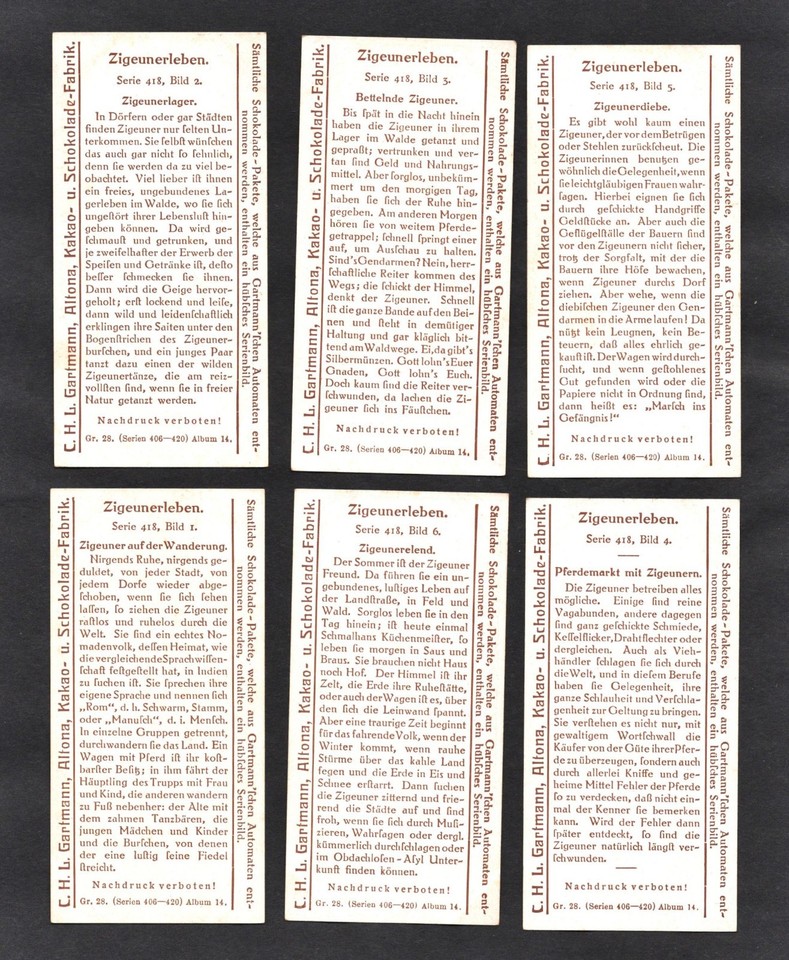 C. H. L. Gartmann, Altona, Kakao- u. Schokolade-Fabrik.
Zigeunerleben.
Serie 418, Bild 2.
Zigeunerlager.
In Dörfern oder gar Städten
finden Zigeuner nur ſelten Un-
terkommen. Sie ſelbſt wünſchen
das auch gar nicht ſo ſehnlich,
denn ſie werden da zu viel be-
obachtet. Viel lieber iſt ihnen
ein freies, ungebundenes La-
gerleben im Walde, wo ſie ſich
ungeſtört ihrer Lebensluſt hin-
geben können. Da wird ge-
ſchmauſt und getrunken, und
je zweifelhafter der Erwerb der
Speiſen und Getränke iſt, deſto
beſſer ſchmecken ſie ihnen.
Dann wird die Geige hervor-
geholt; erſt lockend und leiſe,
dann wild und leidenſchaftlich
erklingen ihre Saiten unter den
Bogenſtrichen des Zigeuner-
burſchen, und ein junges Paar
tanzt dazu einen der wilden
Zigeunertänze, die am reiz-
vollſten ſind, wenn ſie in freier
Natur getanzt werden.
Nachdruck verboten!
Gr. 28. (Serien 406—420) Album 14.
Sämtliche Schokolade-Pakete, welche aus Gartmann'ſchen Automaten ent-
nommen werden, enthalten ein hübſches Serienbild.
C. H. L. Gartmann, Altona, Kakao- u. Schokolade-Fabrik.
Zigeunerleben.
Serie 418, Bild 3.
Bettelnde Zigeuner.
Bis ſpät in die Nacht hinein
haben die Zigeuner in ihrem
Lager im Walde getanzt und
gepraßt; vertrunken und ver-
tan ſind Geld und Nahrungs-
mittel. Aber ſorglos, unbeküm-
mert um den morgigen Tag,
haben ſie ſich der Ruhe hin-
gegeben. Am anderen Morgen
hören ſie von weitem Pferde-
getrappel; ſchnell ſpringt einer
auf, um Ausſchau zu halten.
Sind's Gendarmen? Nein, herr-
ſchaftliche Reiter kommen des
Wegs; die ſchickt der Himmel,
denkt der Zigeuner. Schnell
iſt die ganze Bande auf den Bei-
nen und ſteht in demütiger
Haltung und gar kläglich bit-
tend am Waldwege. Ei, da gibt's
Silbermünzen. Gott lohn's Euer
Gnaden, Gott lohn's Euch.
Doch kaum ſind die Reiter ver-
ſchwunden, da lachen die Zi-
geuner ſich ins Fäuſtchen.
Nachdruck verboten!
Gr. 28. (Serien 406—420) Album 14.
Sämtliche Schokolade-Pakete, welche aus Gartmann'ſchen Automaten ent-
nommen werden, enthalten ein hübſches Serienbild.
C. H. L. Gartmann, Altona, Kakao- u. Schokolade-Fabrik.
Zigeunerleben.
Serie 418, Bild 5.
Zigeunerdiebe.
Es gibt wohl kaum einen
Zigeuner, der vor dem Betrügen
oder Stehlen zurückſcheut. Die
Zigeunerinnen benutzen ge-
wöhnlich die Gelegenheit, wenn
ſie leichtgläubigen Frauen wahr-
ſagen. Hierbei eignen ſie ſich
durch geſchickte Handgriffe
Geldſtücke an. Aber auch die
Geflügelſtälle der Bauern ſind
vor den Zigeunern nicht ſicher,
trotz der Sorgfalt, mit der die
Bauern ihre Höfe bewachen,
wenn Zigeuner durchs Dorf
ziehen. Aber wehe, wenn die
diebiſchen Zigeuner den Gen-
darmen in die Arme laufen! Da
nützt kein Leugnen, kein Be-
teuern, daß alles ehrlich ge-
kauft iſt. Der Wagen wird durch-
ſucht, und wenn geſtohlenes
Gut gefunden wird oder die
Papiere nicht in Ordnung ſind,
dann heißt es: „Marſch ins
Gefängnis!“
Nachdruck verboten!
Gr. 28. (Serien 406—420) Album 14.
Sämtliche Schokolade-Pakete, welche aus Gartmann'ſchen Automaten ent-
nommen werden, enthalten ein hübſches Serienbild.
C. H. L. Gartmann, Altona, Kakao- u. Schokolade-Fabrik.
Zigeunerleben.
Serie 418, Bild 1.
Zigeuner auf der Wanderung.
Nirgends Ruhe, nirgends ge-
duldet, von jeder Stadt, von
jedem Dorfe wieder abge-
ſchoben, wenn ſie ſich ſehen
laſſen, ſo ziehen die Zigeuner
raſtlos und ruhelos durch die
Welt. Sie ſind ein echtes No-
madenvolk, deſſen Heimat, wie
die vergleichende Sprachwiſſen-
ſchaft feſtgeſtellt hat, in Indien
zu ſuchen iſt. Sie ſprechen ihre
eigene Sprache und nennen ſich
„Rom“, d. h. Schwarm, Stamm,
oder „Manuſch“, d. i. Menſch.
In einzelne Gruppen getrennt,
durchwandern ſie das Land. Ein
Wagen mit Pferd iſt ihr koſt-
barſter Beſitz; in ihm fährt der
Häuptling des Trupps mit Frau
und Kind, die anderen wandern
zu Fuß nebenher: der Alte mit
dem zahmen Tanzbären, die
jungen Mädchen und Kinder
und die Burſchen, von denen
der eine luſtig ſeine Fiedel
ſtreicht.
Nachdruck verboten!
Gr. 28. (Serien 406—420) Album 14.
Sämtliche Schokolade-Pakete, welche aus Gartmann'ſchen Automaten ent-
nommen werden, enthalten ein hübſches Serienbild.
C. H. L. Gartmann, Altona, Kakao- u. Schokolade-Fabrik.
Zigeunerleben.
Serie 418, Bild 6.
Zigeunerelend.
Der Sommer iſt der Zigeuner
Freund. Da führen ſie ein un-
gebundenes, luſtiges Leben auf
der Landſtraße, in Feld und
Wald. Sorglos leben ſie in den
Tag hinein; iſt heute einmal
Schmalhans Küchenmeiſter, ſo
leben ſie morgen in Saus und
Braus. Sie brauchen nicht Haus
noch Hof. Der Himmel iſt ihr
Zelt, die Erde ihre Ruheſtätte,
oder auch der Wagen iſt es, über
den ſich die Leinwand ſpannt.
Aber eine traurige Zeit beginnt
für das fahrende Volk, wenn der
Winter kommt, wenn rauhe
Stürme über das kahle Land
fegen und die Erde in Eis und
Schnee erſtarrt. Dann ſuchen
die Zigeuner zitternd und frie-
rend die Städte auf und ſind
froh, wenn ſie ſich durch Muſi-
zieren, Wahrſagen oder dergl.
kümmerlich durchſchlagen oder
im Obdachloſen-Aſyl Unter-
kunft finden können.
Nachdruck verboten!
Gr. 28. (Serien 406—420) Album 14.
Sämtliche Schokolade-Pakete, welche aus Gartmann'ſchen Automaten ent-
nommen werden, enthalten ein hübſches Serienbild.
C. H. L. Gartmann, Altona, Kakao- u. Schokolade-Fabrik.
Zigeunerleben.
Serie 418, Bild 4.
Pferdemarkt mit Zigeunern.
Die Zigeuner betreiben alles
mögliche. Einige ſind reine
Vagabunden, andere dagegen
ſind ganz geſchickte Schmiede,
Keſſelflicker, Drahtflechter oder
dergleichen. Auch als Vieh-
händler ſchlagen ſie ſich durch
die Welt, und in dieſem Berufe
haben ſie Gelegenheit, ihre
ganze Schlauheit und Verſchla-
genheit zur Geltung zu bringen.
Sie verſtehen es nicht nur, mit
gewaltigem Wortſchwall die
Käufer von der Güte ihrer Pfer-
de zu überzeugen, ſondern auch
durch allerlei Kniffe und ge-
heime Mittel Fehler der Pferde
ſo zu verdecken, daß nicht ein-
mal der Kenner ſie bemerken
kann. Wird der Fehler dann
ſpäter entdeckt, ſo ſind die
Zigeuner natürlich längſt ver-
ſchwunden.
Nachdruck verboten!
Gr. 28. (Serien 406—420) Album 14.
Sämtliche Schokolade-Pakete, welche aus Gartmann'ſchen Automaten ent-
nommen werden, enthalten ein hübſches Serienbild.